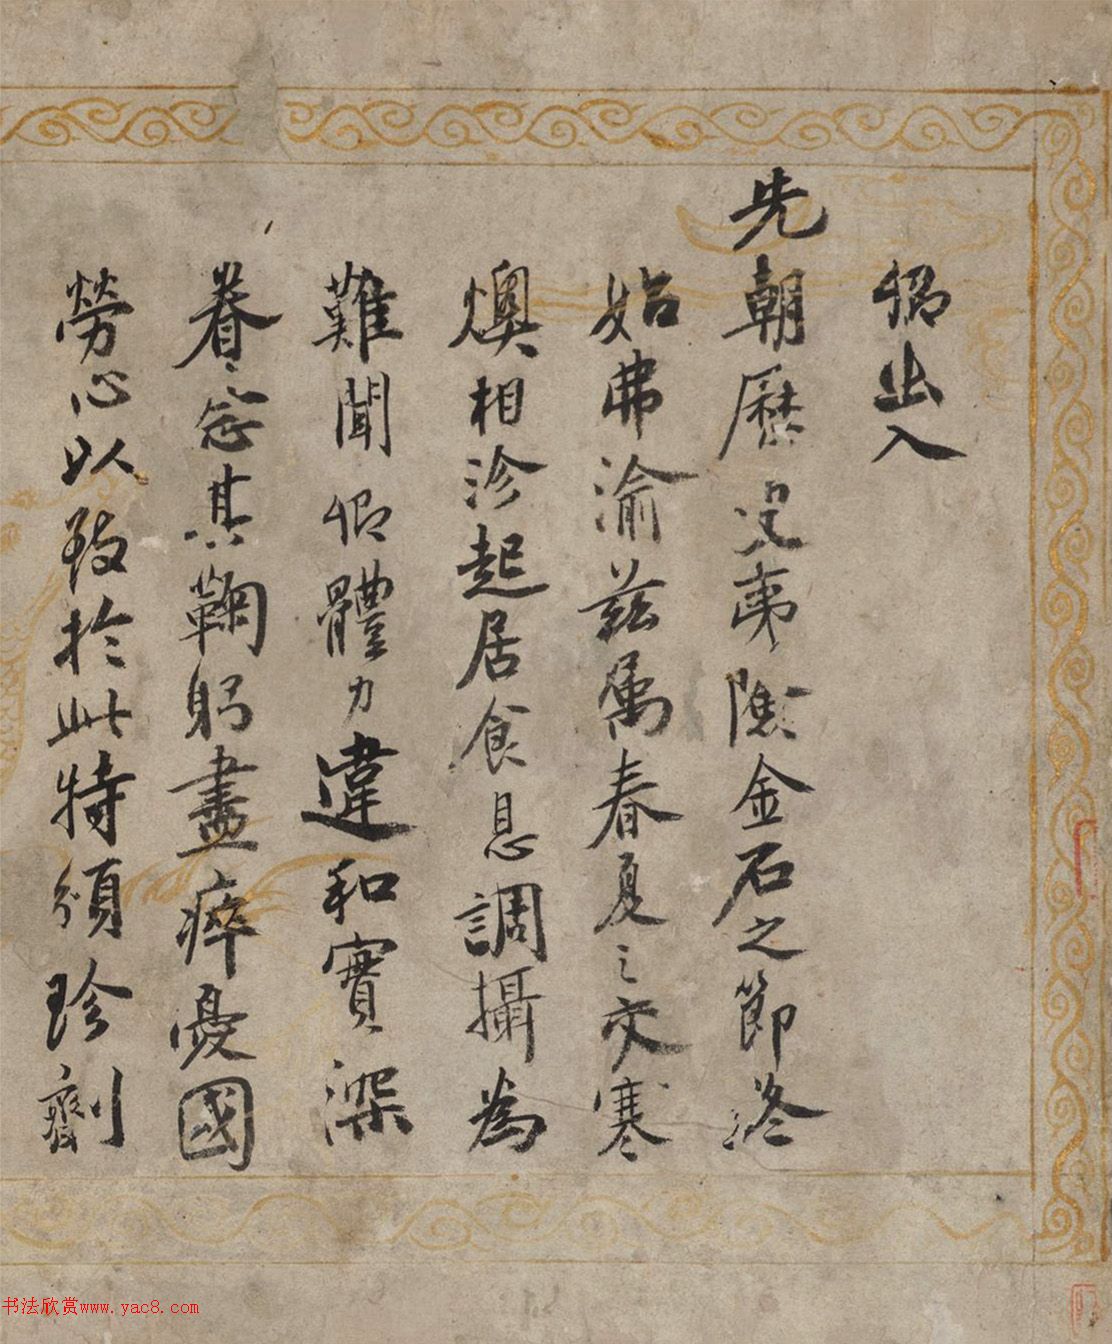 卿出入
先朝歷事夷險金石之節終
始弗渝茲屬春夏之交寒
燠相沴起居食息調攝為
難聞卿體力違和實深
眷念其鞠躬盡瘁憂國
勞心以致於此特頒珍劑
书法欣赏www.yac8.com